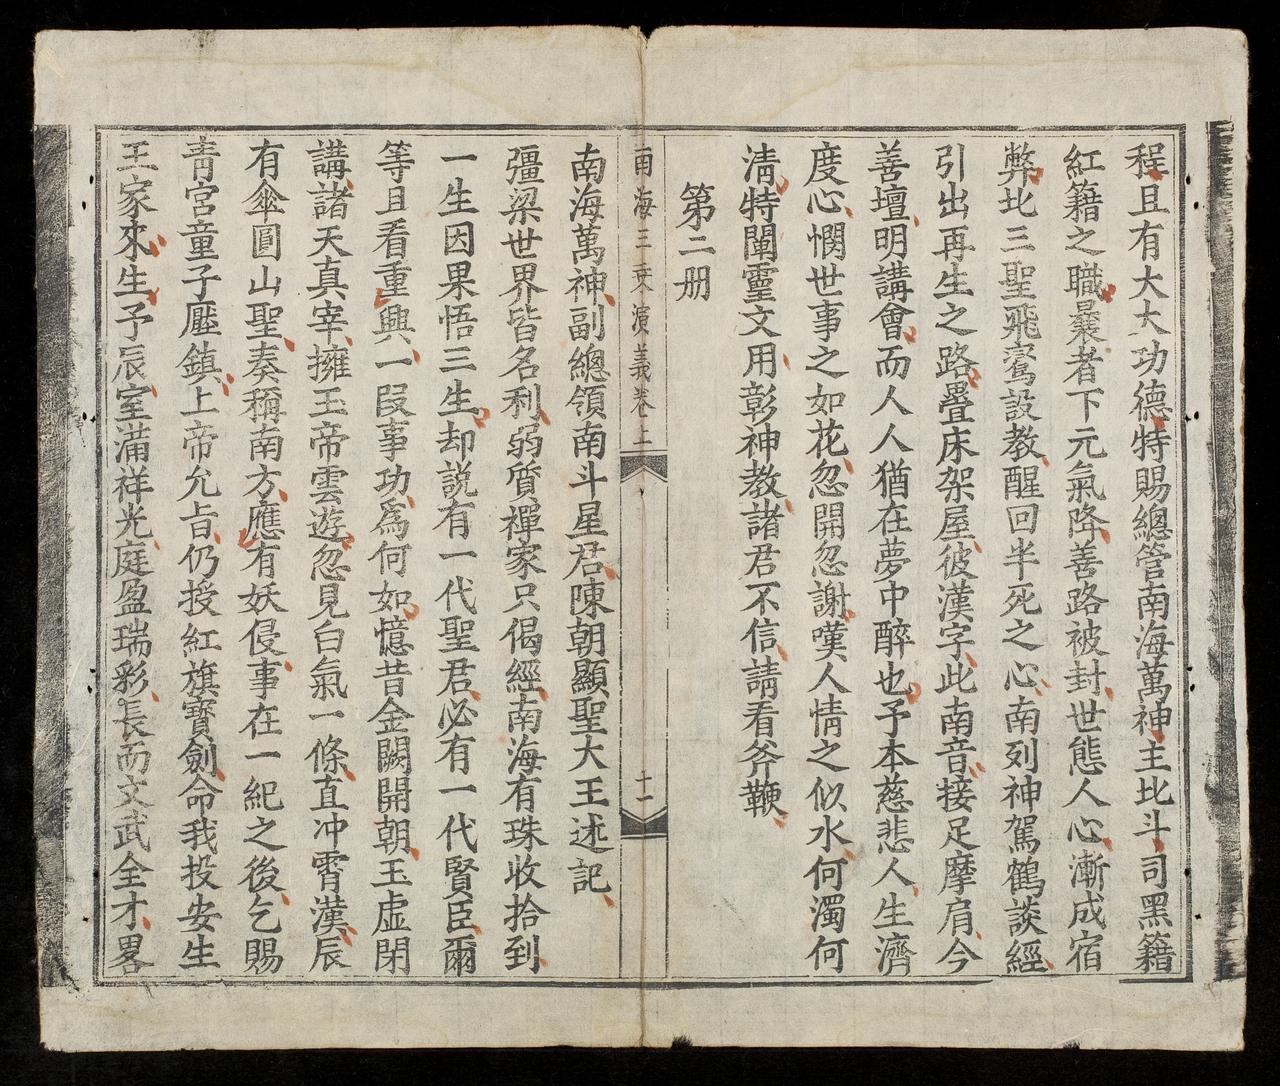 程且有大大功德特賜總管南海萬神主北斗司黑籍
紅籍之職曩者下元氣降善路被封世態人心漸成宿
弊北三聖飛鸞設教醒回半死之心南列神駕鶴談經
引出再生之路疊床架屋彼漢字此南音接足摩肩今
善壇明講會而人人猶在夢中醉也予本慈悲人生濟
度心憫世事之如花忽開忽謝嘆人情之似水何濁何
淸特闡靈文用彰神教諸君不信請看斧鞭
第二册
南海三乘演義卷上
十一
南海萬神副總領南斗星君陳朝顯聖大王述記
彊梁世界皆名利弱質禪家只偈經南海有珠收拾到
一生因果悟三生却説有一代聖君必有一代賢臣爾
等且看重興一段事功爲何如憶昔金闕開朝玉虛閉
講諸天真宰擁玉帝雲遊忽見白氣一條直冲霄漢辰
有傘圓山聖奏稱南方應有妖侵事在一紀之後乞賜
青宮童子壓鎮上帝允旨仍授紅旗寶劍命我投安生
王家來生予辰室滿祥光庭盈瑞彩長而文武全才畧